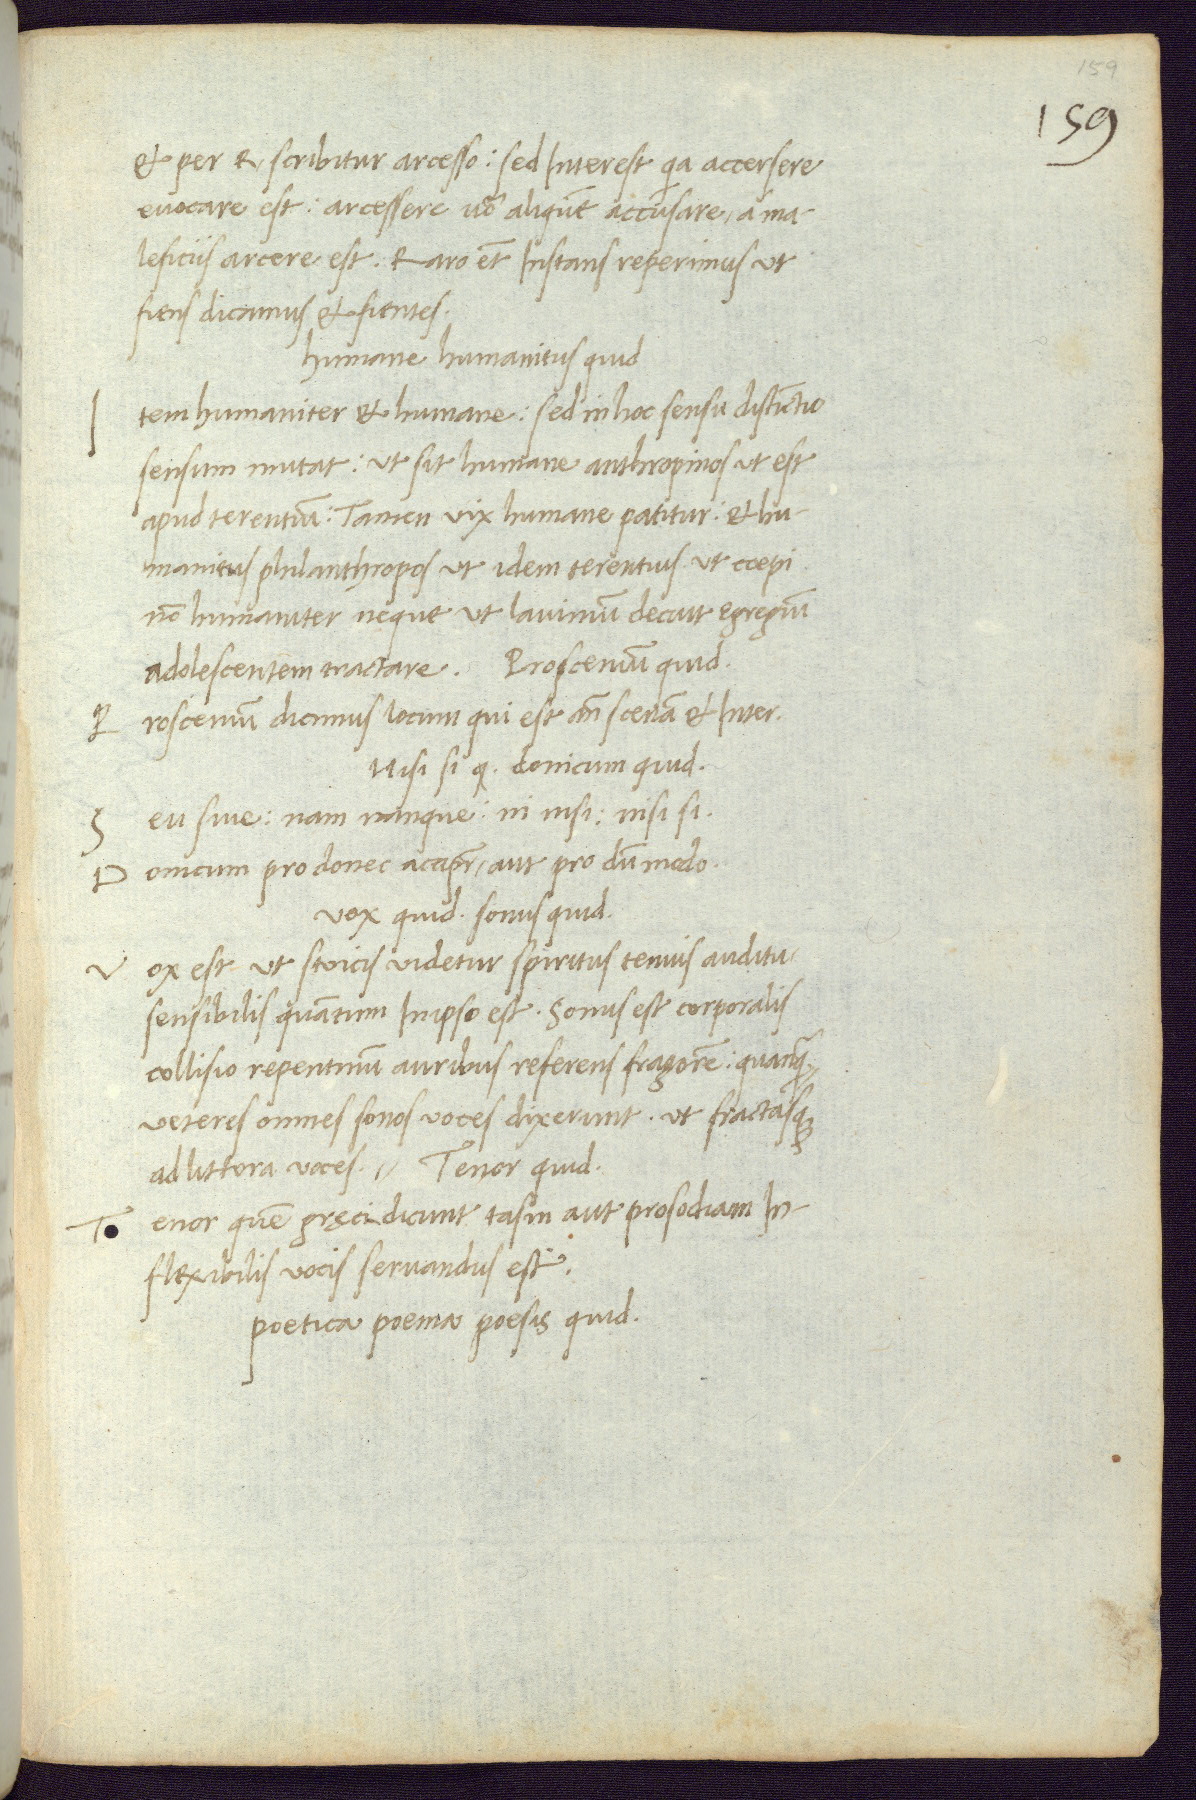 159
159
& per R scribitur arcesso: sed Interest q̃a accersere
euocare est: arcessere uõ aliquẽ accusare, a ma-
leficijs arcere est. Raro et̃ Instans reperimus ut
fiens dicamus & fientes.
humane humanitus quid
I tem humaniter & humane: sed in hoc sensu distĩctio
sensum mutat: ut sit humane anthropinos ut est
apud terentiũ: Tamen vix humane patitur: & hu-
manitus philanthropos ut idem terentius ut coepi
nõ humaniter neque ut
decuit egregiũ
adolescentem tractare. Proscenium quid.
P roscenium dicimus locum qui est añ scenã & Inter.
Nisi si q. donicum quid.
S eu siue: nam nanque: ni nisi: nisi si.
D onicum pro donec accipr̃, aut pro dũmodo.
vox quid. sonus quid.
V ox est ut stoicis videtur spiritus tenuis auditu
sensibilis quãtum Inipso est. Sonus est corporalis
collisio repentinũ auribus referens fragorẽ: quanq̃
veteres omnes sonos voces dixerunt. ut fractasq;
ad littora voces. // Tenor quid.
T enor quẽ gręci dicunt tasin aut prosodiam In-
flexibilis vocis seruandus est.
poetica poema poesis quid.